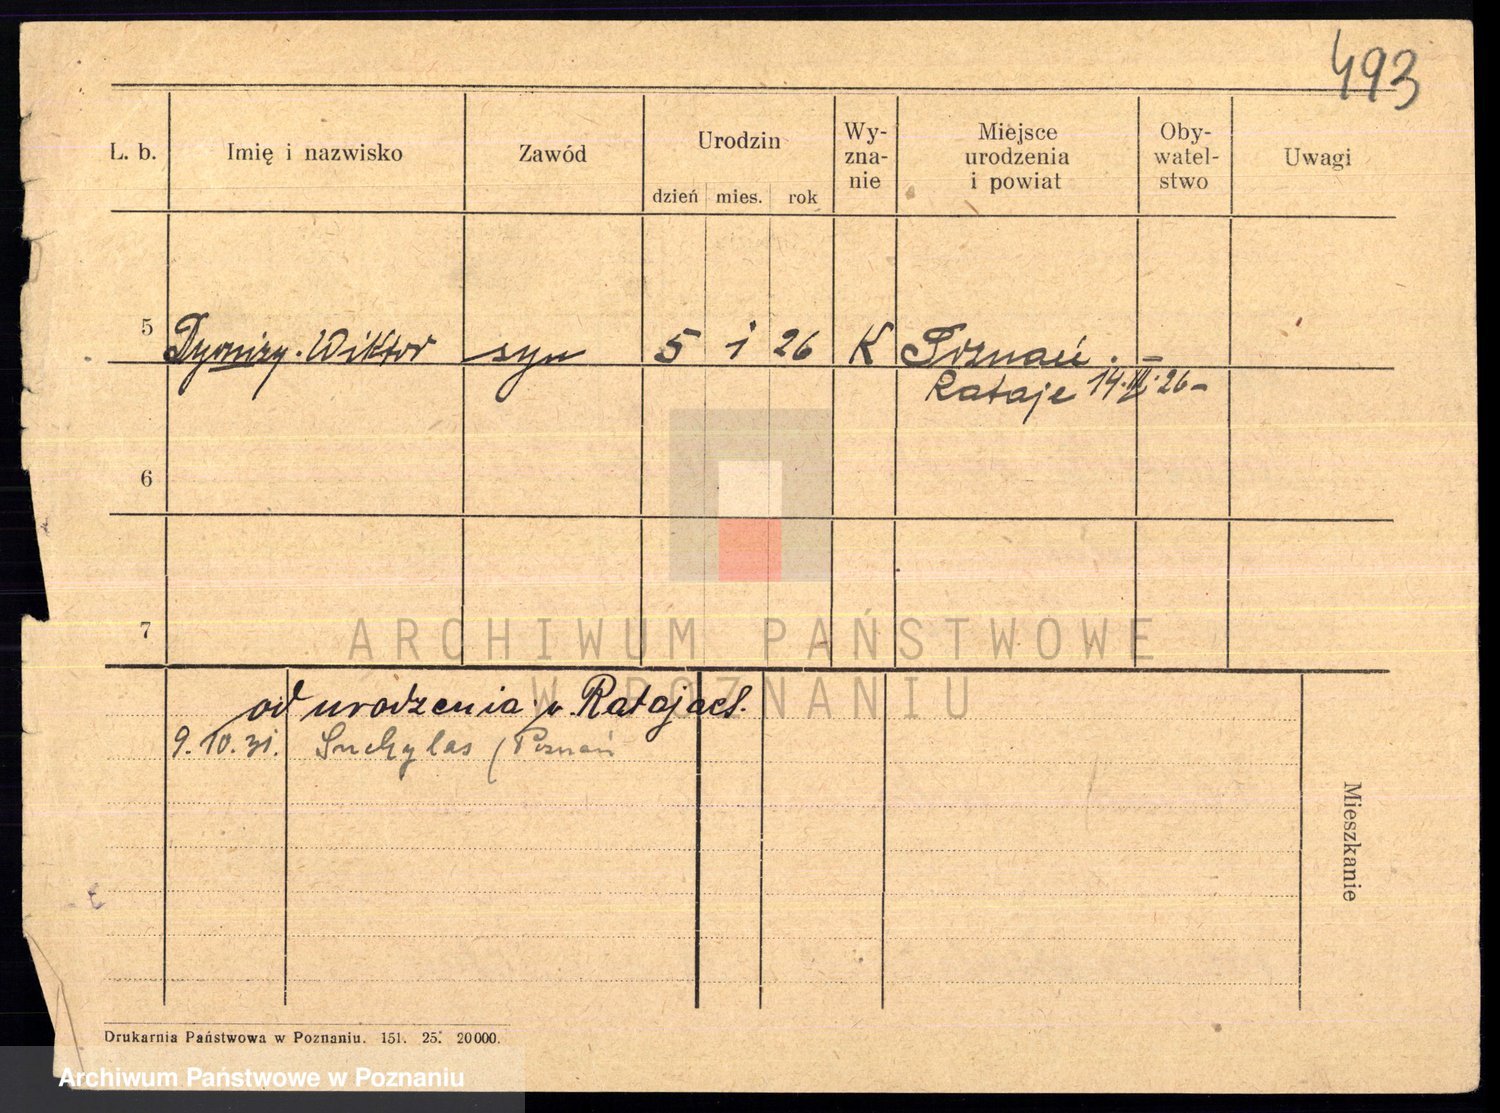 493
L. b. Imię i nazwisko Zawód Urodzin Wy-zna-nie Miejsce urodzenia i powiat Oby-watel-stwo Uwagi
dzień mies. rok
5 Dyonizy. Wiktor syn 5 1 26 K Poznań.
Rataje 14.III.26-
6
7
ARCHIWUM PAŃSTWOWE
W POZNANIU
od urodzenia w Ratajach.
9.10.31. Suchylas / Poznań
Mieszkanie
Drukarnia Państwowa w Poznaniu. 151. 25. 20000.
Archiwum Państwowe w Poznaniu